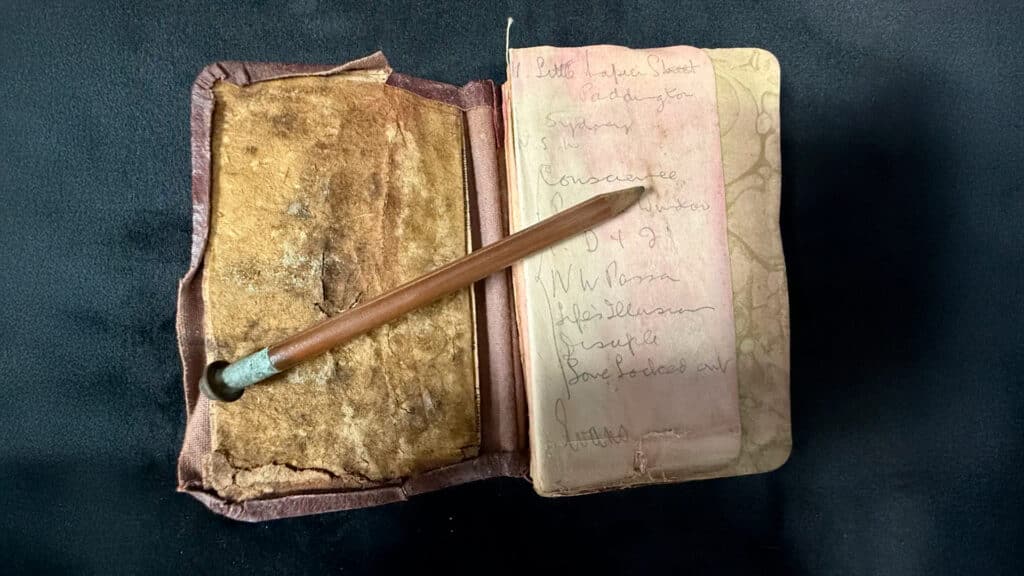 Little Napier Street
Paddington
Sydney
N. S. W
Conscience
D & J
N W Passa
Life's Illusion
Disciple
Love Locked out